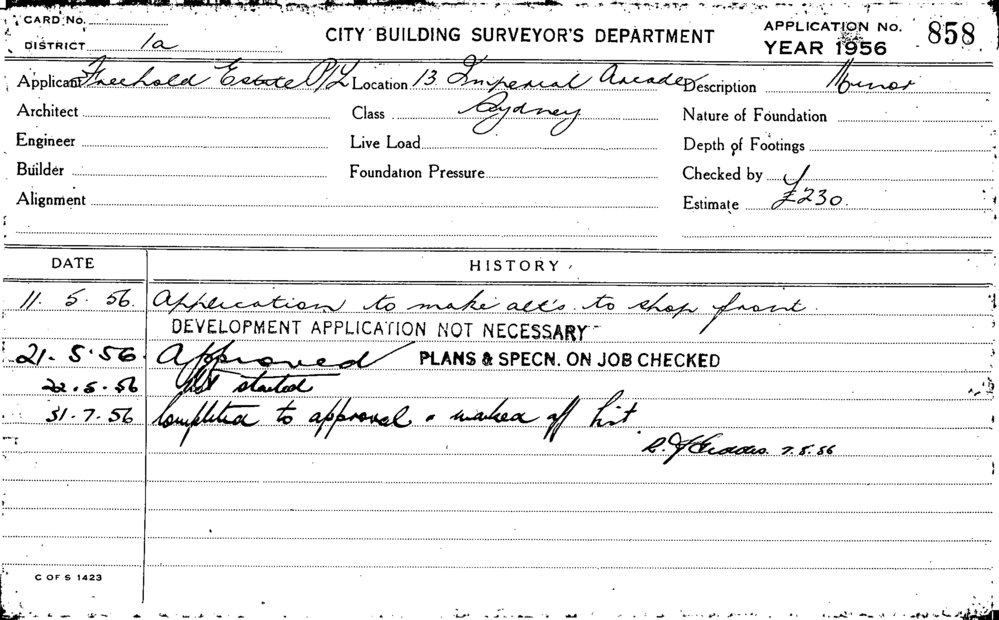 CARD No.
DISTRICT 1a
CITY BUILDING SURVEYOR'S DEPARTMENT
APPLICATION No. 858
YEAR 1956
Applicant Freehold Estate P/L Location 13 Imperial Arcade Description Minor
Architect Class Sydney Nature of Foundation
Engineer Live Load Depth of Footings
Builder Foundation Pressure Checked by
Alignment Estimate £230.
DATE HISTORY
11. 5. 56. Application to make alt's. to shop front.
DEVELOPMENT APPLICATION NOT NECESSARY
21. 5. 56. Approved PLANS & SPECN. ON JOB CHECKED
22. 5. 56 Not started
31. 7. 56 Completed to approval & marked off list
7. 8. 56
C OF S 1423